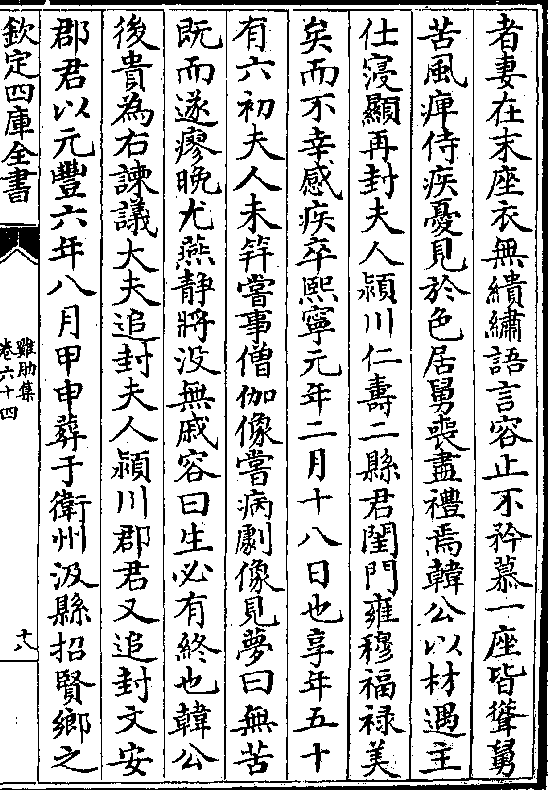 者妻在末座衣無繢繡語言容止不矜慕一座皆聳舅
苦風痺侍疾憂見於色居舅喪盡禮焉韓公以材遇主
仕寖顯再封夫人潁川仁壽二縣君閨門雍穆福祿美
矣而不幸感疾卒熙寧元年二月十八日也享年五十
有六初夫人未笄嘗事僧伽像嘗病劇像見夢曰無苦
既而遂瘳晚尤燕靜將沒無戚容曰生必有終也韓公
後貴為右諫議大夫追封夫人潁川郡君又追封文安
郡君以元豐六年八月甲申葬于衛州汲縣招賢鄉之
欽定四庫全書
雞肋集
卷六十四
十八